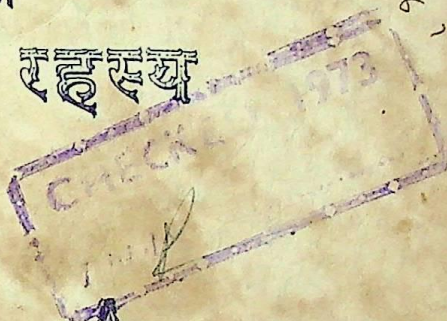 रहस्य
CHECKED 1973